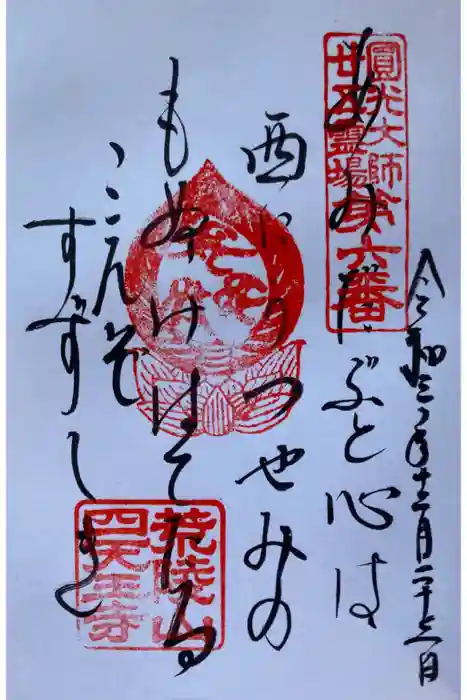 圓光大師
廿五霊場第六番
令和三年十二月二十七日
あみだぶと心は
西にうつせみの
もぬけはてたる
こゑぞ
すずしき
荒陵山
四天王寺